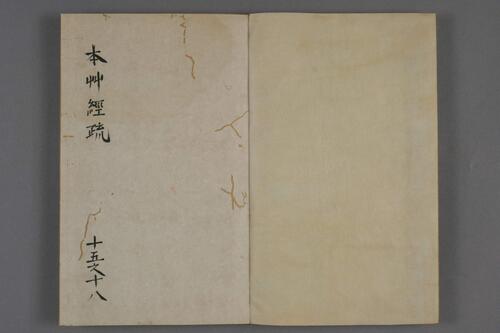 本艸經疏
十五之十八